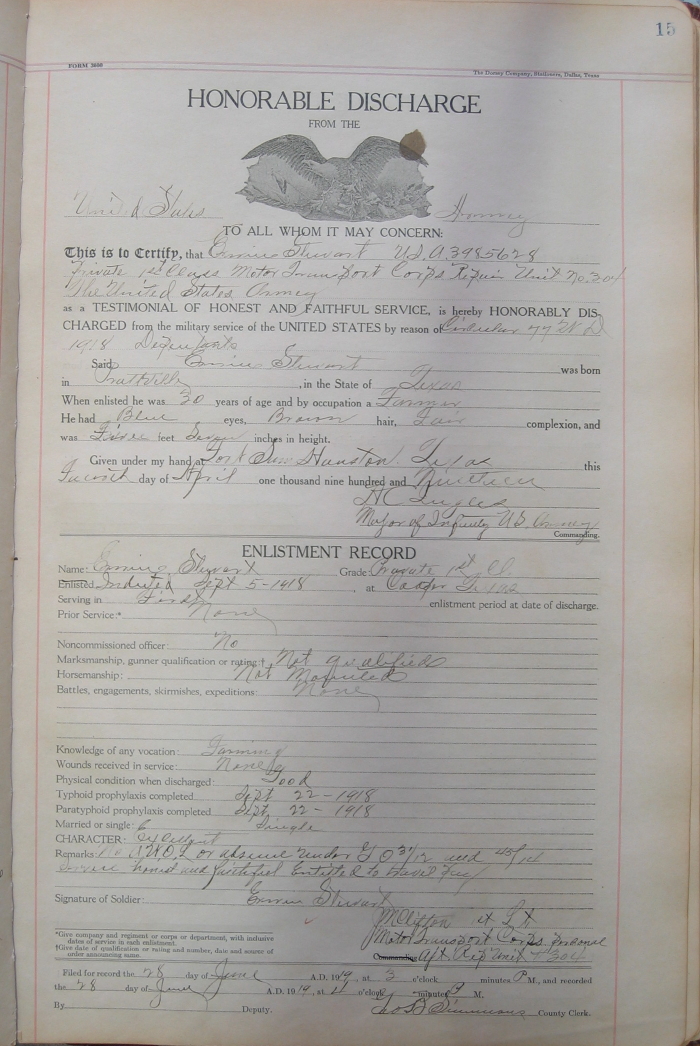 15
FORM 3608
The Dorsey Company, Stationers, Dallas, Texas
HONORABLE DISCHARGE
FROM THE
United States Army
TO ALL WHOM IT MAY CONCERN:
This is to Certify, that Ermine Stewart U.S.A. 3985628
Private 1st Class Motor Transport Corps Repair Unit No. 304
The United States Army
as a TESTIMONIAL OF HONEST AND FAITHFUL SERVICE, is hereby HONORABLY DIS-
CHARGED from the military service of the UNITED STATES by reason of Circular 77 W.D.
1918
Said Ermine Stewart was born
in , in the State of Texas
When enlisted he was 30 years of age and by occupation a Farmer
He had Blue eyes, Brown hair, Fair complexion, and
was Five feet Seven inches in height.
Given under my hand at Fort Sam Houston, Texas this
day of April one thousand nine hundred and Nineteen
Major of Infantry U.S. Army
Commanding.
ENLISTMENT RECORD
Name: Ermine Stewart Grade: Private 1st Cl
Enlisted Inducted Sept 5-1918, at Cooper
Serving in First enlistment period at date of discharge.
Prior Service:* None
Noncommissioned officer: No
Marksmanship, gunner qualification or rating:† Not qualified
Horsemanship: Not Mounted
Battles, engagements, skirmishes, expeditions: None
Knowledge of any vocation: Farming
Wounds received in service: None
Physical condition when discharged: Good
Typhoid prophylaxis completed. Sept 22-1918
Paratyphoid prophylaxis completed. Sept 22-1918
Married or single: Single
CHARACTER: Excellent
Remarks: No A.W.O.L or absence under G O 31/12 and 45/14
Service honest and faithful Entitled to travel Pay
Signature of Soldier: Ermine Stewart
1st Lt
Motor Transport Corps Personnel
Commanding Unit 304
*Give company and regiment or corps or department, with inclusive
dates of service in each enlistment.
†Give date of qualification or rating and number, date and source of
order announcing same.
Filed for record the 28 day of June A.D. 1919, at 3 o'clock minutes P M., and recorded
the 28 day of June A.D. 1919, at 4 o'clock minutes P M.
By Deputy. Simmons County Clerk.